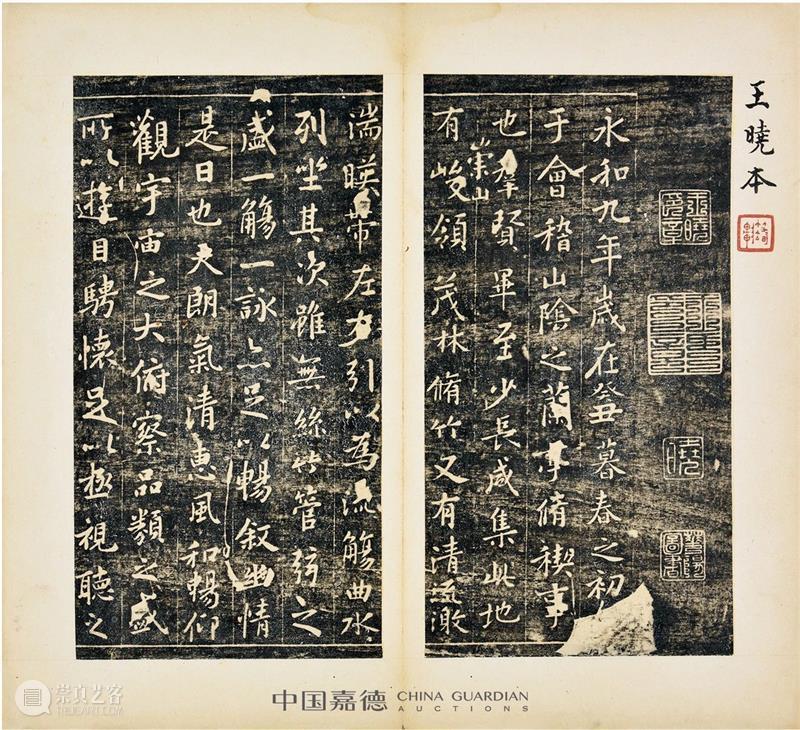 王曉本
永和九年歲在癸丑暮春之初
于會稽山陰之蘭亭脩稧事
也羣賢畢至少長咸集此地
有崇山峻領茂林脩竹又有清流激
湍暎帶左右引以為流觴曲水
列坐其次雖無絲竹管弦之
盛一觴一詠亦足以暢叙幽情
是日也天朗氣清惠風和暢仰
觀宇宙之大俯察品類之盛
所以遊目騁懷足以極視聽之
曉
中国嘉德 CHINA GUARDIAN
AUCTIONS
崇真艺客